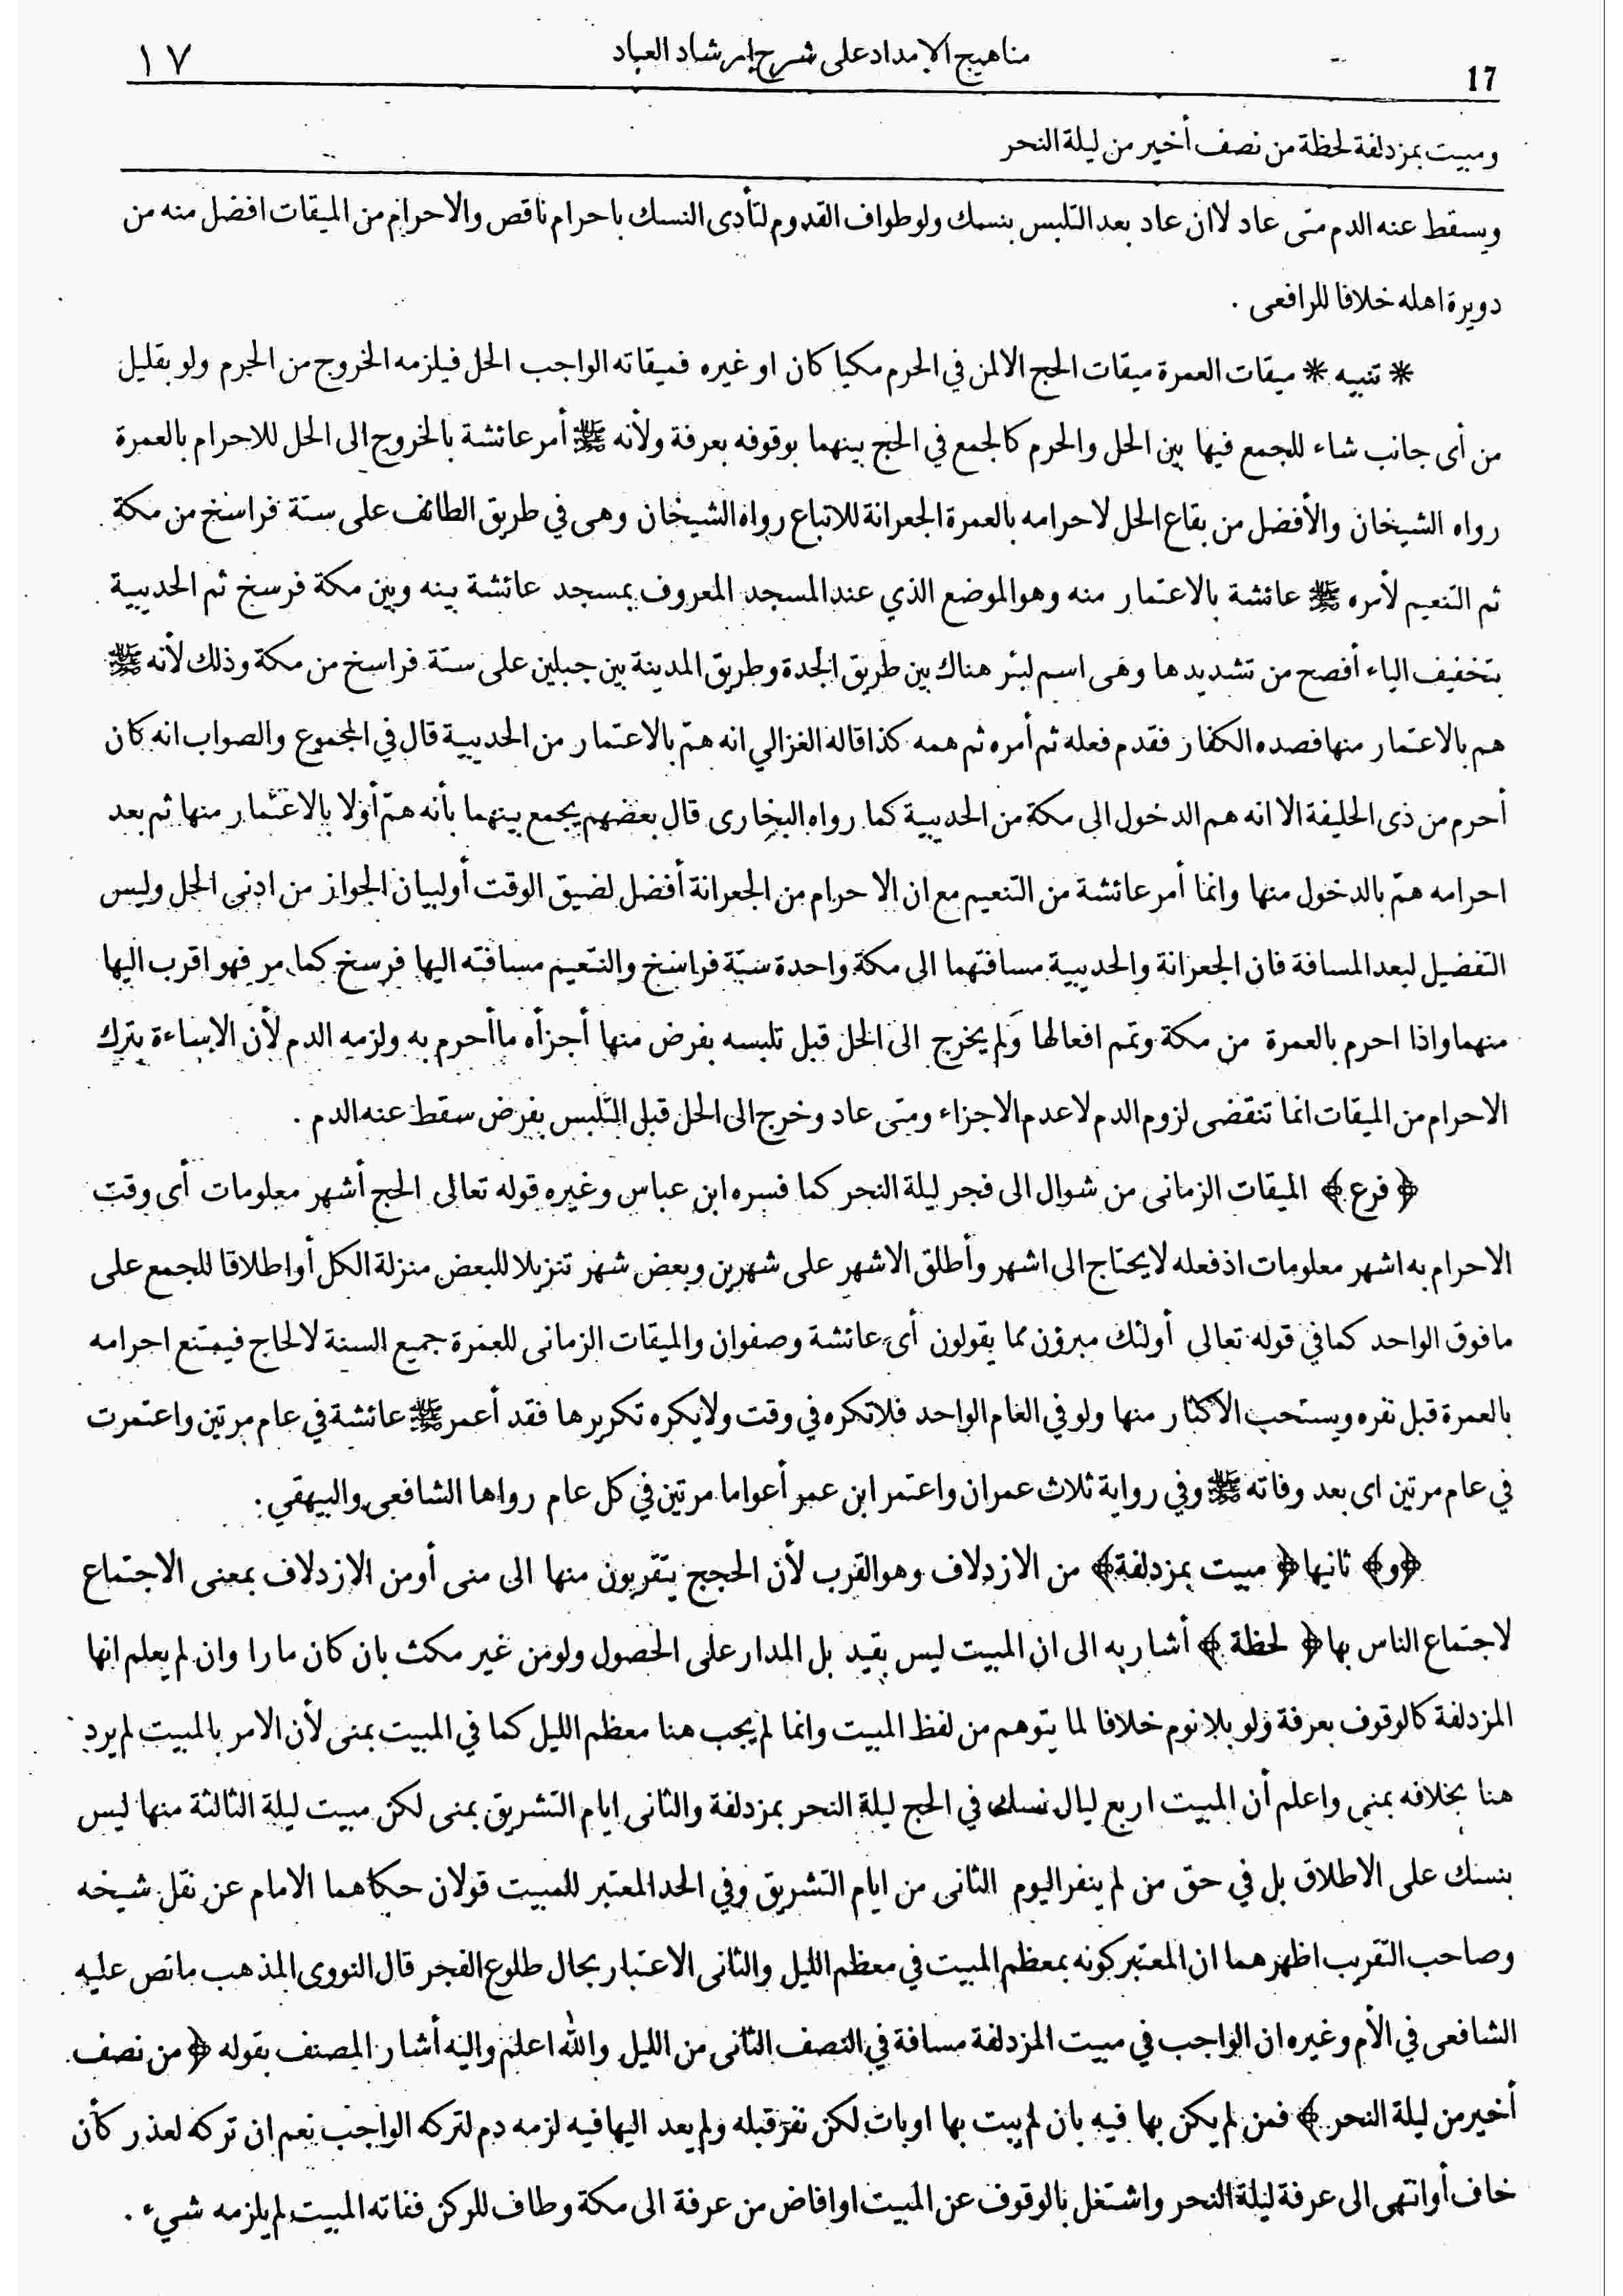 ١٧
مناهيج الإمداد على شرح إرشاد العباد
17
ومبيت بمزدلفة لحظة من نصف أخير من ليلة النحر
ويسقط عنه الدم متى عاد لا ان عاد بعد التلبس بنسك ولو طواف القدوم لتأدى النسك باحرام ناقص والاحرام من الميقات افضل منه من
دويرة اهله خلافا للرافعى .
* تنبيه * ميقات العمرة ميقات الحج الا لمن في الحرم مكيا كان او غيره فميقاته الواجب الحل فيلزمه الخروج من الحرم ولو بقليل
من أى جانب شاء للجمع فيها بين الحل والحرم كالجمع في الحج بينهما بوقوفه بعرفة ولأنه ﷺ أمر عائشة بالخروج الى الحل للاحرام بالعمرة
رواه الشيخان والأفضل من بقاع الحل لاحرامه بالعمرة الجعرانة للاتباع رواه الشيخان وهى في طريق الطائف على ستة فراسخ من مكة
ثم التنعيم لأمره ﷺ عائشة بالاعتمار منه وهو الموضع الذي عند المسجد المعروف بمسجد عائشة بينه وبين مكة فرسخ ثم الحديبية
بتخفيف الياء أفصح من تشديدها وهى اسم لبئر هناك بين طريق الجدة وطريق المدينة بين جبلين على ستة فراسخ من مكة وذلك لأنه ﷺ
هم بالاعتمار منها فصده الكفار فقدم فعله ثم أمره ثم همه كذا قاله الغزالي انه همّ بالاعتمار من الحديبية قال في المجموع والصواب انه كان
أحرم من ذى الحليفة الا انه هم الدخول الى مكة من الحديبية كما رواه البخارى قال بعضهم يجمع بينهما بأنه همّ أولا بالاعتمار منها ثم بعد
احرامه همّ بالدخول منها وانما أمر عائشة من التنعيم مع ان الاحرام من الجعرانة أفضل لضيق الوقت أو لبيان الجواز من ادنى الحل وليس
التفضيل لبعد المسافة فان الجعرانة والحديبية مسافتهما الى مكة واحدة ستة فراسخ والتنعيم مسافته اليها فرسخ كما مر فهو اقرب اليها
منهما واذا احرم بالعمرة من مكة وتمم افعالها ولم يخرج الى الحل قبل تلبسه بفرض منها أجزأه ما أحرم به ولزمه الدم لأن الاساءة بترك
الاحرام من الميقات انما تنقضى لزوم الدم لا عدم الاجزاء ومتى عاد وخرج الى الحل قبل التلبس بفرض سقط عنه الدم .
﴿ فرع ﴾ الميقات الزمانى من شوال الى فجر ليلة النحر كما فسره ابن عباس وغيره قوله تعالى الحج أشهر معلومات أى وقت
الاحرام به اشهر معلومات اذ فعله لا يحتاج الى اشهر وأطلق الاشهر على شهرين وبعض شهر تنزيلا للبعض منزلة الكل أو اطلاقا للجمع على
ما فوق الواحد كما في قوله تعالى أولئك مبرؤن مما يقولون أى عائشة وصفوان والميقات الزمانى للعمرة جميع السنة لا لحاج فيمتنع احرامه
بالعمرة قبل نفره ويستحب الاكثار منها ولو في العام الواحد فلا تكره في وقت ولا يكره تكريرها فقد أعمر ﷺ عائشة في عام مرتين واعتمرت
في عام مرتين اى بعد وفاته ﷺ وفي رواية ثلاث عمران واعتمر ابن عمر أعواما مرتين في كل عام رواها الشافعى والبيهقي :
﴿ و ﴾ ثانيها ﴿ مبيت بمزدلفة ﴾ من الازدلاف وهو القرب لأن الحجج يتقربون منها الى منى أو من الازدلاف بمعنى الاجتماع
لاجتماع الناس بها ﴿ لحظة ﴾ أشار به الى ان المبيت ليس بقيد بل المدار على الحصول ولو من غير مكث بان كان مارا وان لم يعلم انها
المزدلفة كالوقوف بعرفة ولو بلا نوم خلافا لما يتوهم من لفظ المبيت وانما لم يجب هنا معظم الليل كما في المبيت بمنى لأن الامر بالمبيت لم يرد
هنا بخلافه بمنى واعلم أن المبيت اربع ليال نسك في الحج ليلة النحر بمزدلفة والثانى ايام التشريق بمنى لكن مبيت ليلة الثالثة منها ليس
بنسك على الاطلاق بل في حق من لم ينفر اليوم الثانى من ايام التشريق وفي الحد المعتبر للمبيت قولان حكاهما الامام عن نقل شيخه
وصاحب التقريب اظهرهما ان المعتبر كونه بمعظم المبيت في معظم الليل والثانى الاعتبار بحال طلوع الفجر قال النووى المذهب ما نص عليه
الشافعى في الأم وغيره ان الواجب في مبيت المزدلفة مسافة في النصف الثانى من الليل والله اعلم واليه أشار المصنف بقوله ﴿ من نصف
أخير من ليلة النحر ﴾ فمن لم يكن بها فيه بان لم يبت بها او بات لكن نفر قبله ولم يعد اليها فيه لزمه دم لتركه الواجب نعم ان تركه لعذر كأن
خاف أو انتهى الى عرفة ليلة النحر واشتغل بالوقوف عن المبيت او افاض من عرفة الى مكة وطاف للركن ففاته المبيت لم يلزمه شيء .